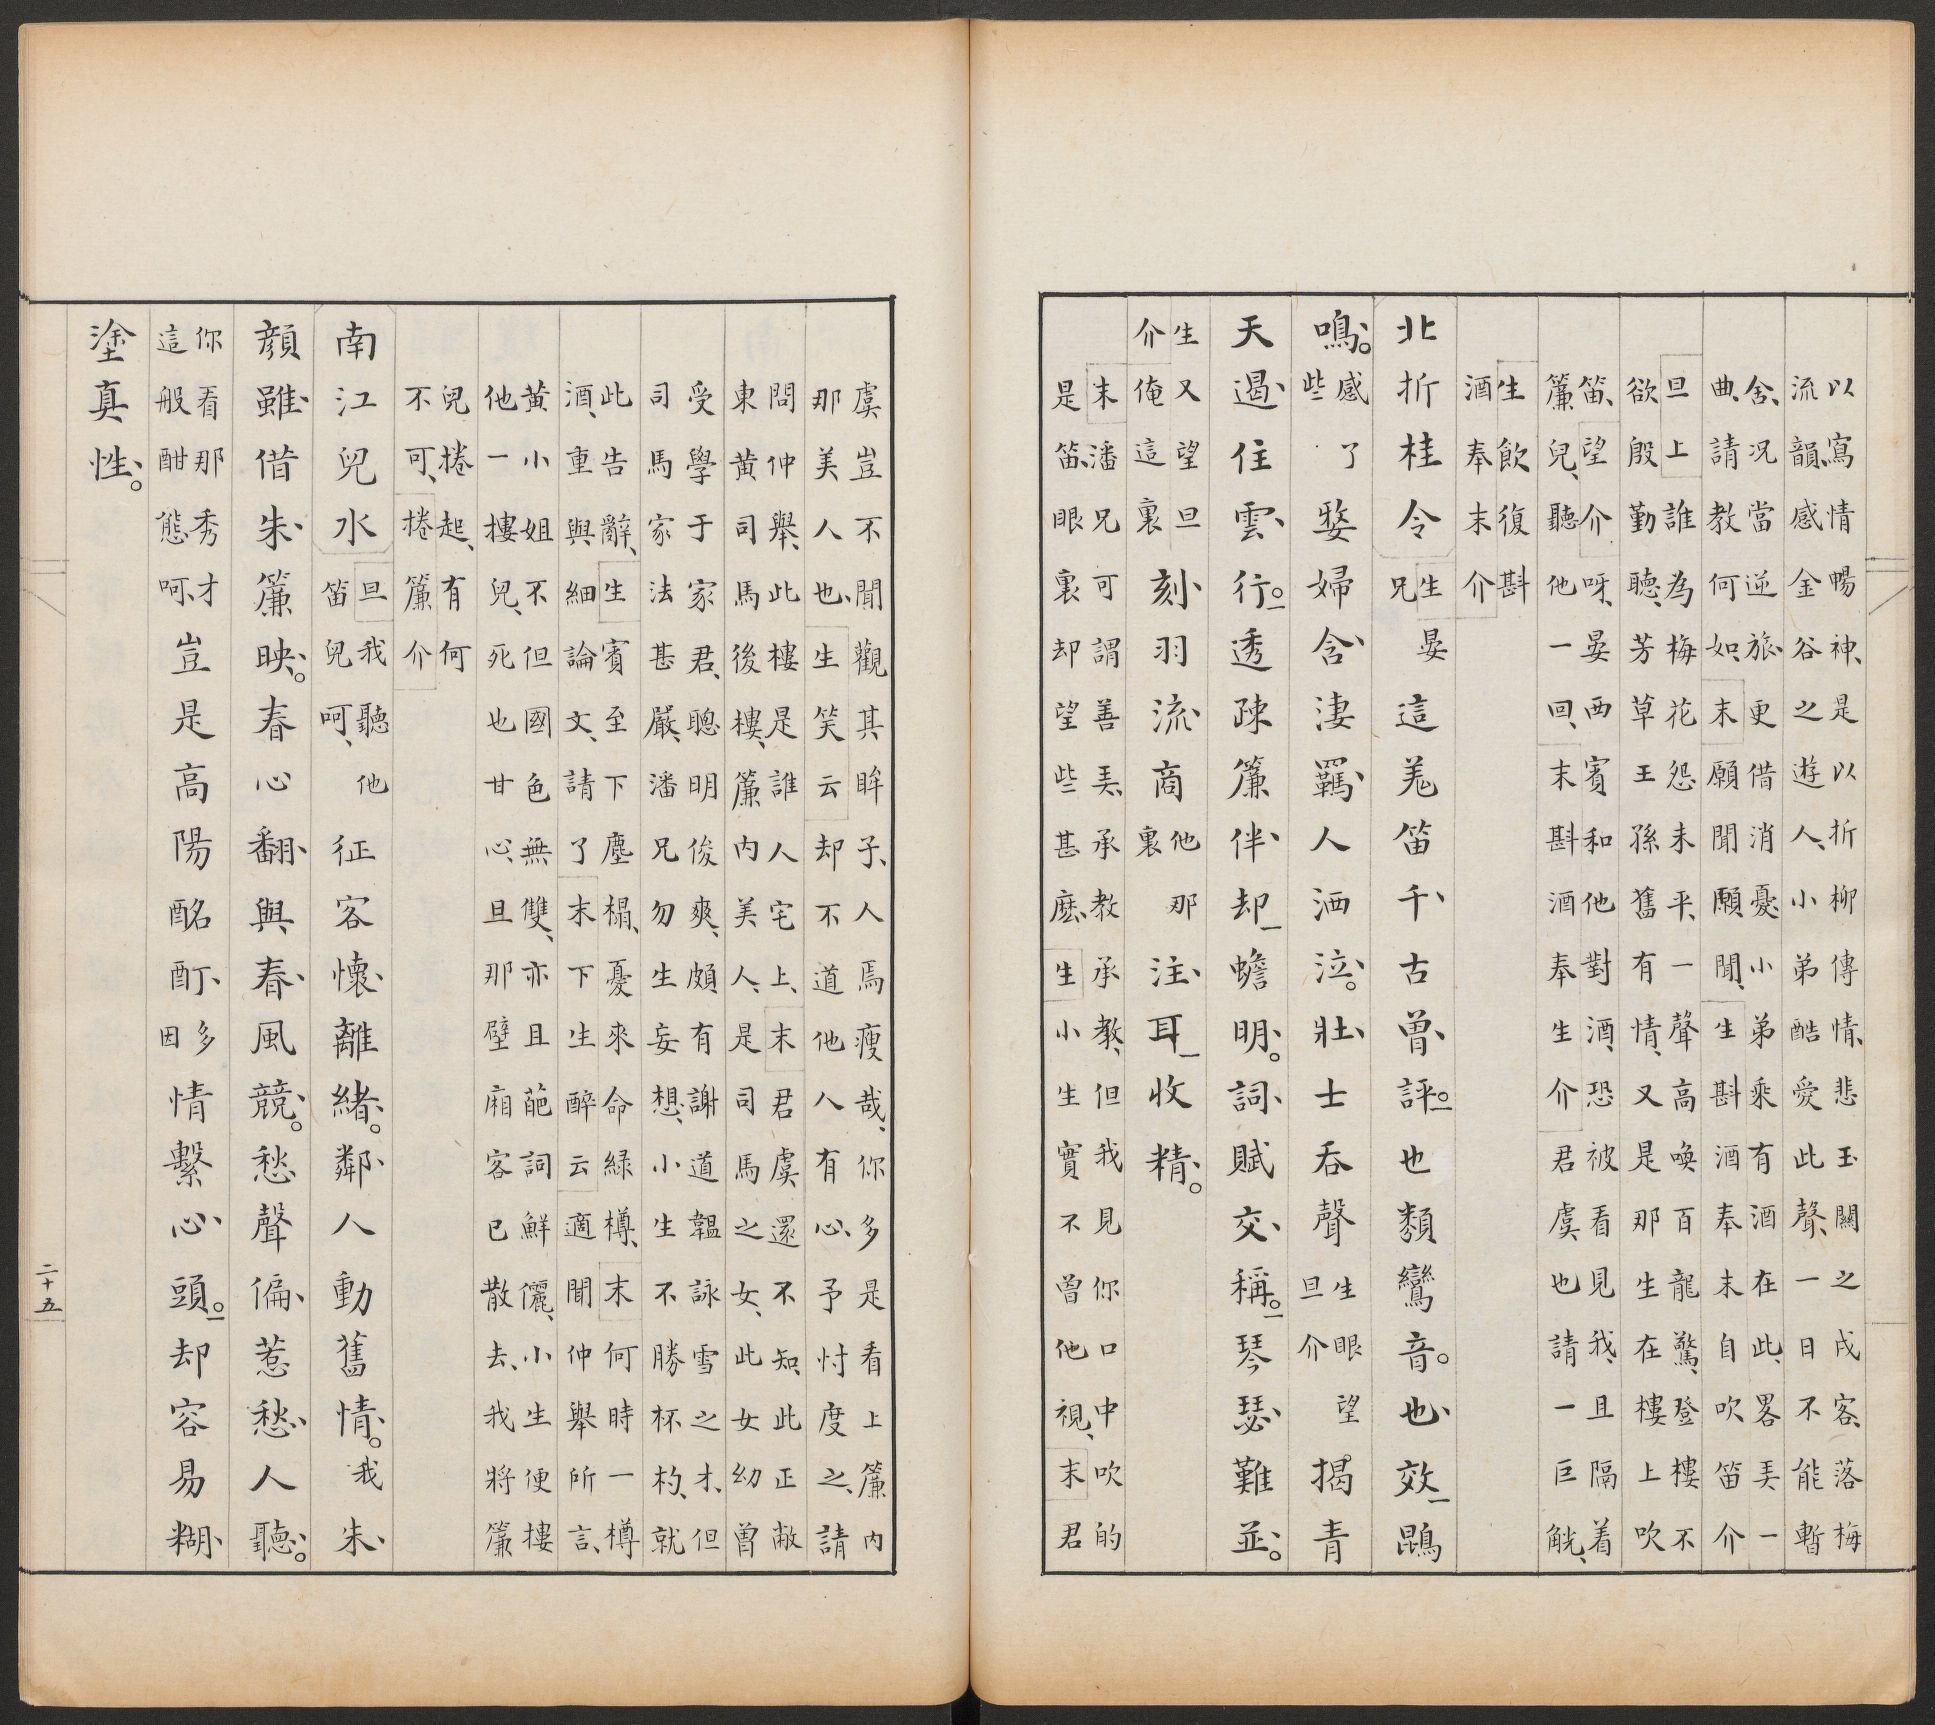 以寫情暢神、是以折柳傳情、悲玉關之戍客、落梅
流韻、感金谷之遊人、小弟酷愛此聲、一日不能暫
舍、況當逆旅、更借消憂、小弟乘有酒在此、畧弄一
曲、請教何如、末願聞願聞、生斟酒奉末自吹笛介
旦上誰為梅花怨未平、一聲高喚百龍驚、登樓不
欲殷勤聽、芳草王孫舊有情、又是那生在樓上吹
笛、望介呀、晏西賓和他對酒、恐被看見我、且隔着
簾兒、聽他一回、末斟酒奉生介君虞也請一巨觥、
生飲復斟
酒奉末介
北折桂令生晏兄這羌笛千古曾評。也類鸞音。也效鵾
鳴。感了些嫠婦含淒羈人洒泣。壯士吞聲生眼望旦介揭青
天遏住雲行。透疎簾伴却蟾明。詞賦交稱。琴瑟難並。
生又望旦介俺這裏刻羽流商他那裏注耳收精。
末潘兄可謂善弄、承教承教、但我見你口中吹的
是笛、眼裏却望些甚麽、生小生實不曾他視、末君
虞豈不聞觀其眸子、人焉瘦哉、你多是看上簾内
那美人也、生笑云却不道他人有心、予忖度之、請
問仲舉、此樓是誰人宅上、末君虞還不知、此正敝
東黄司馬後樓、簾内美人、是司馬之女、此女幼曾
受學于家君、聰明俊爽、頗有謝道韞詠雪之才、但
司馬家法甚嚴、潘兄勿生妄想、小生不勝杯杓、就
此告辭、生賓至下塵榻、憂來命緑樽、末何時一樽
酒、重與細論文、請了末下生醉云適聞仲舉所言、
黄小姐不但國色無雙、亦且葩詞鮮儷、小生便樓
他一樓兒、死也甘心、且那壁廂客已散去、我將簾
兒捲起、有何
不可、捲簾介
南江兒水旦我聽他笛兒呵、征客懷離緒。鄰人動舊情。我朱
顔雖借朱簾映。春心翻與春風競。愁聲偏惹愁人聽。
你看那秀才這般酣態呵、豈是高陽酩酊、多因情繫心頭。却容易糊
塗真性。
二十五